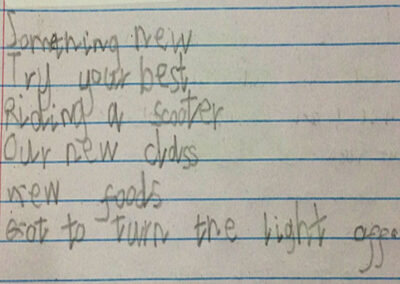 Something new
Try your best
Riding a scooter
Our new class
new foods
to turn the light